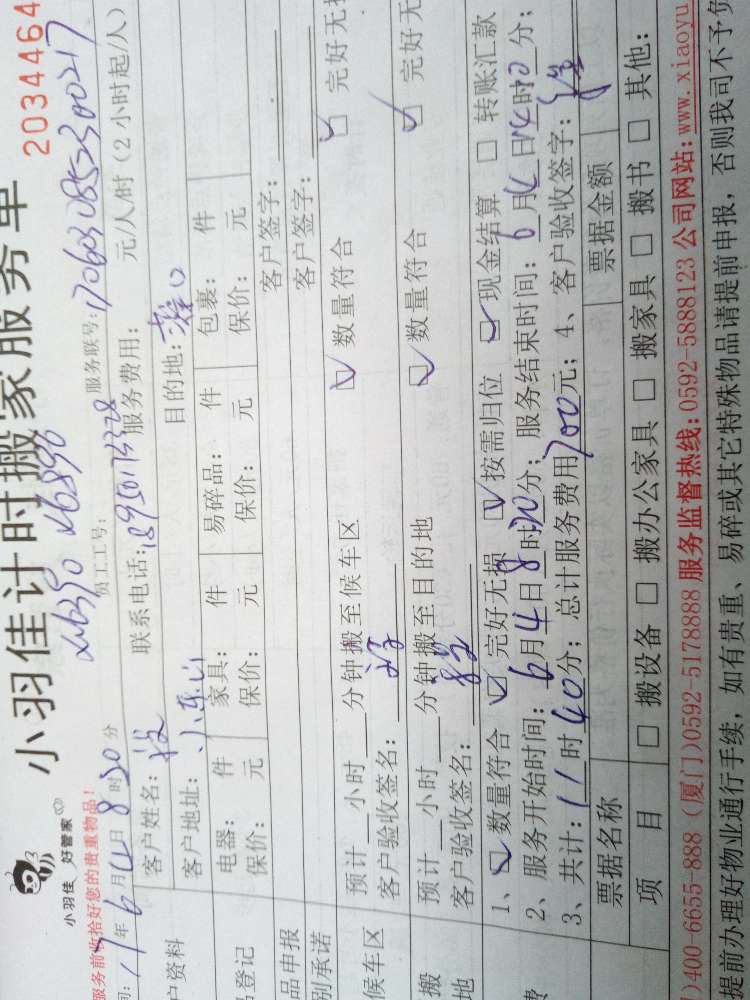 小羽佳 好管家
小羽佳计时搬家服务单
2034464
服务前收拾好您的贵重物品!
员工工号:
服务联号:
17年6月4日8时20分
客户姓名: 联系电话: 服务费用: 元/人/时(2小时起/人)
户资料 客户地址:小东山 目的地:
电器: 件 家具: 件 易碎品: 件 包裹: 件
登记 保价: 元 保价: 元 保价: 元 保价: 元
品申报 客户签字:
别承诺 客户签字:
候车区 预计 小时 分钟搬至候车区 数量符合 完好无损
客户验收签名:
搬 预计 小时 分钟搬至目的地 数量符合 完好无
地 客户验收签名:
1、数量符合 完好无损 按需归位 现金结算 转账汇款
2、服务开始时间:6月4日8时20分; 服务结束时间:6月4日 时 分;
3、共计:11时40分; 总计服务费用700元; 4、客户验收签字:
票据名称 票据金额
项 目 搬设备 搬办公家具 搬家具 搬书 其他:
)400-6655-888 (厦门)0592-5178888 服务监督热线:0592-5888123 公司网站:www.xiaoyu
提前办理好物业通行手续,如有贵重、易碎或其它特殊物品请提前申报,否则我司不予负